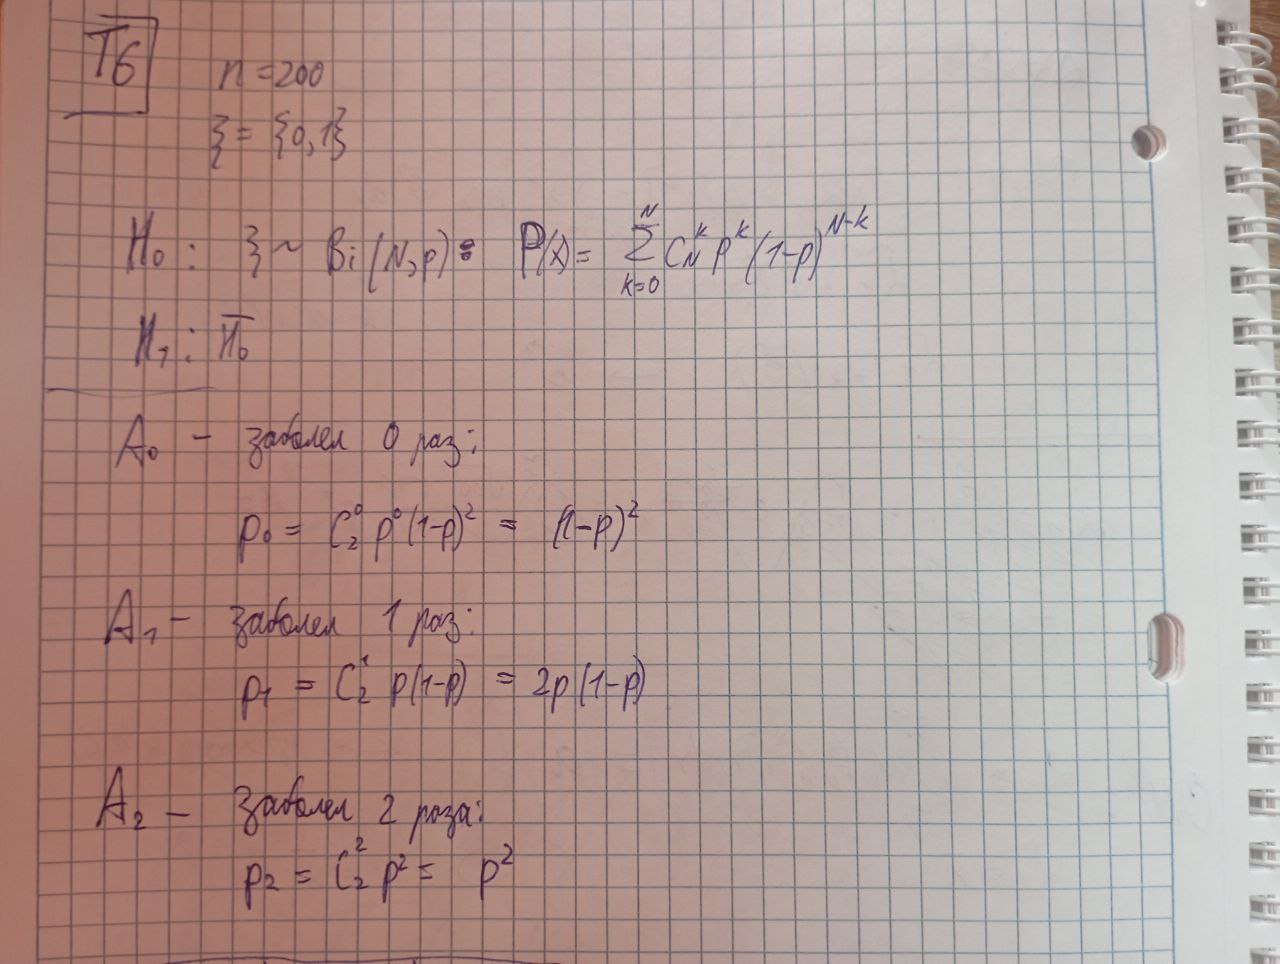 T6
n = 200
ξ = {0,1}
H₀ : ξ ~ Bi(N,p) : P(x) = \sum_{k=0}^{N} C_N^k p^k (1-p)^{N-k}
H₁ : \overline{H₀}
A₀ - заболел 0 раз:
p₀ = C_2^0 p^0 (1-p)^2 = (1-p)^2
A₁ - заболел 1 раз:
p₁ = C_2^1 p(1-p) = 2p(1-p)
A₂ - заболел 2 раза:
p₂ = C_2^2 p^2 = p^2